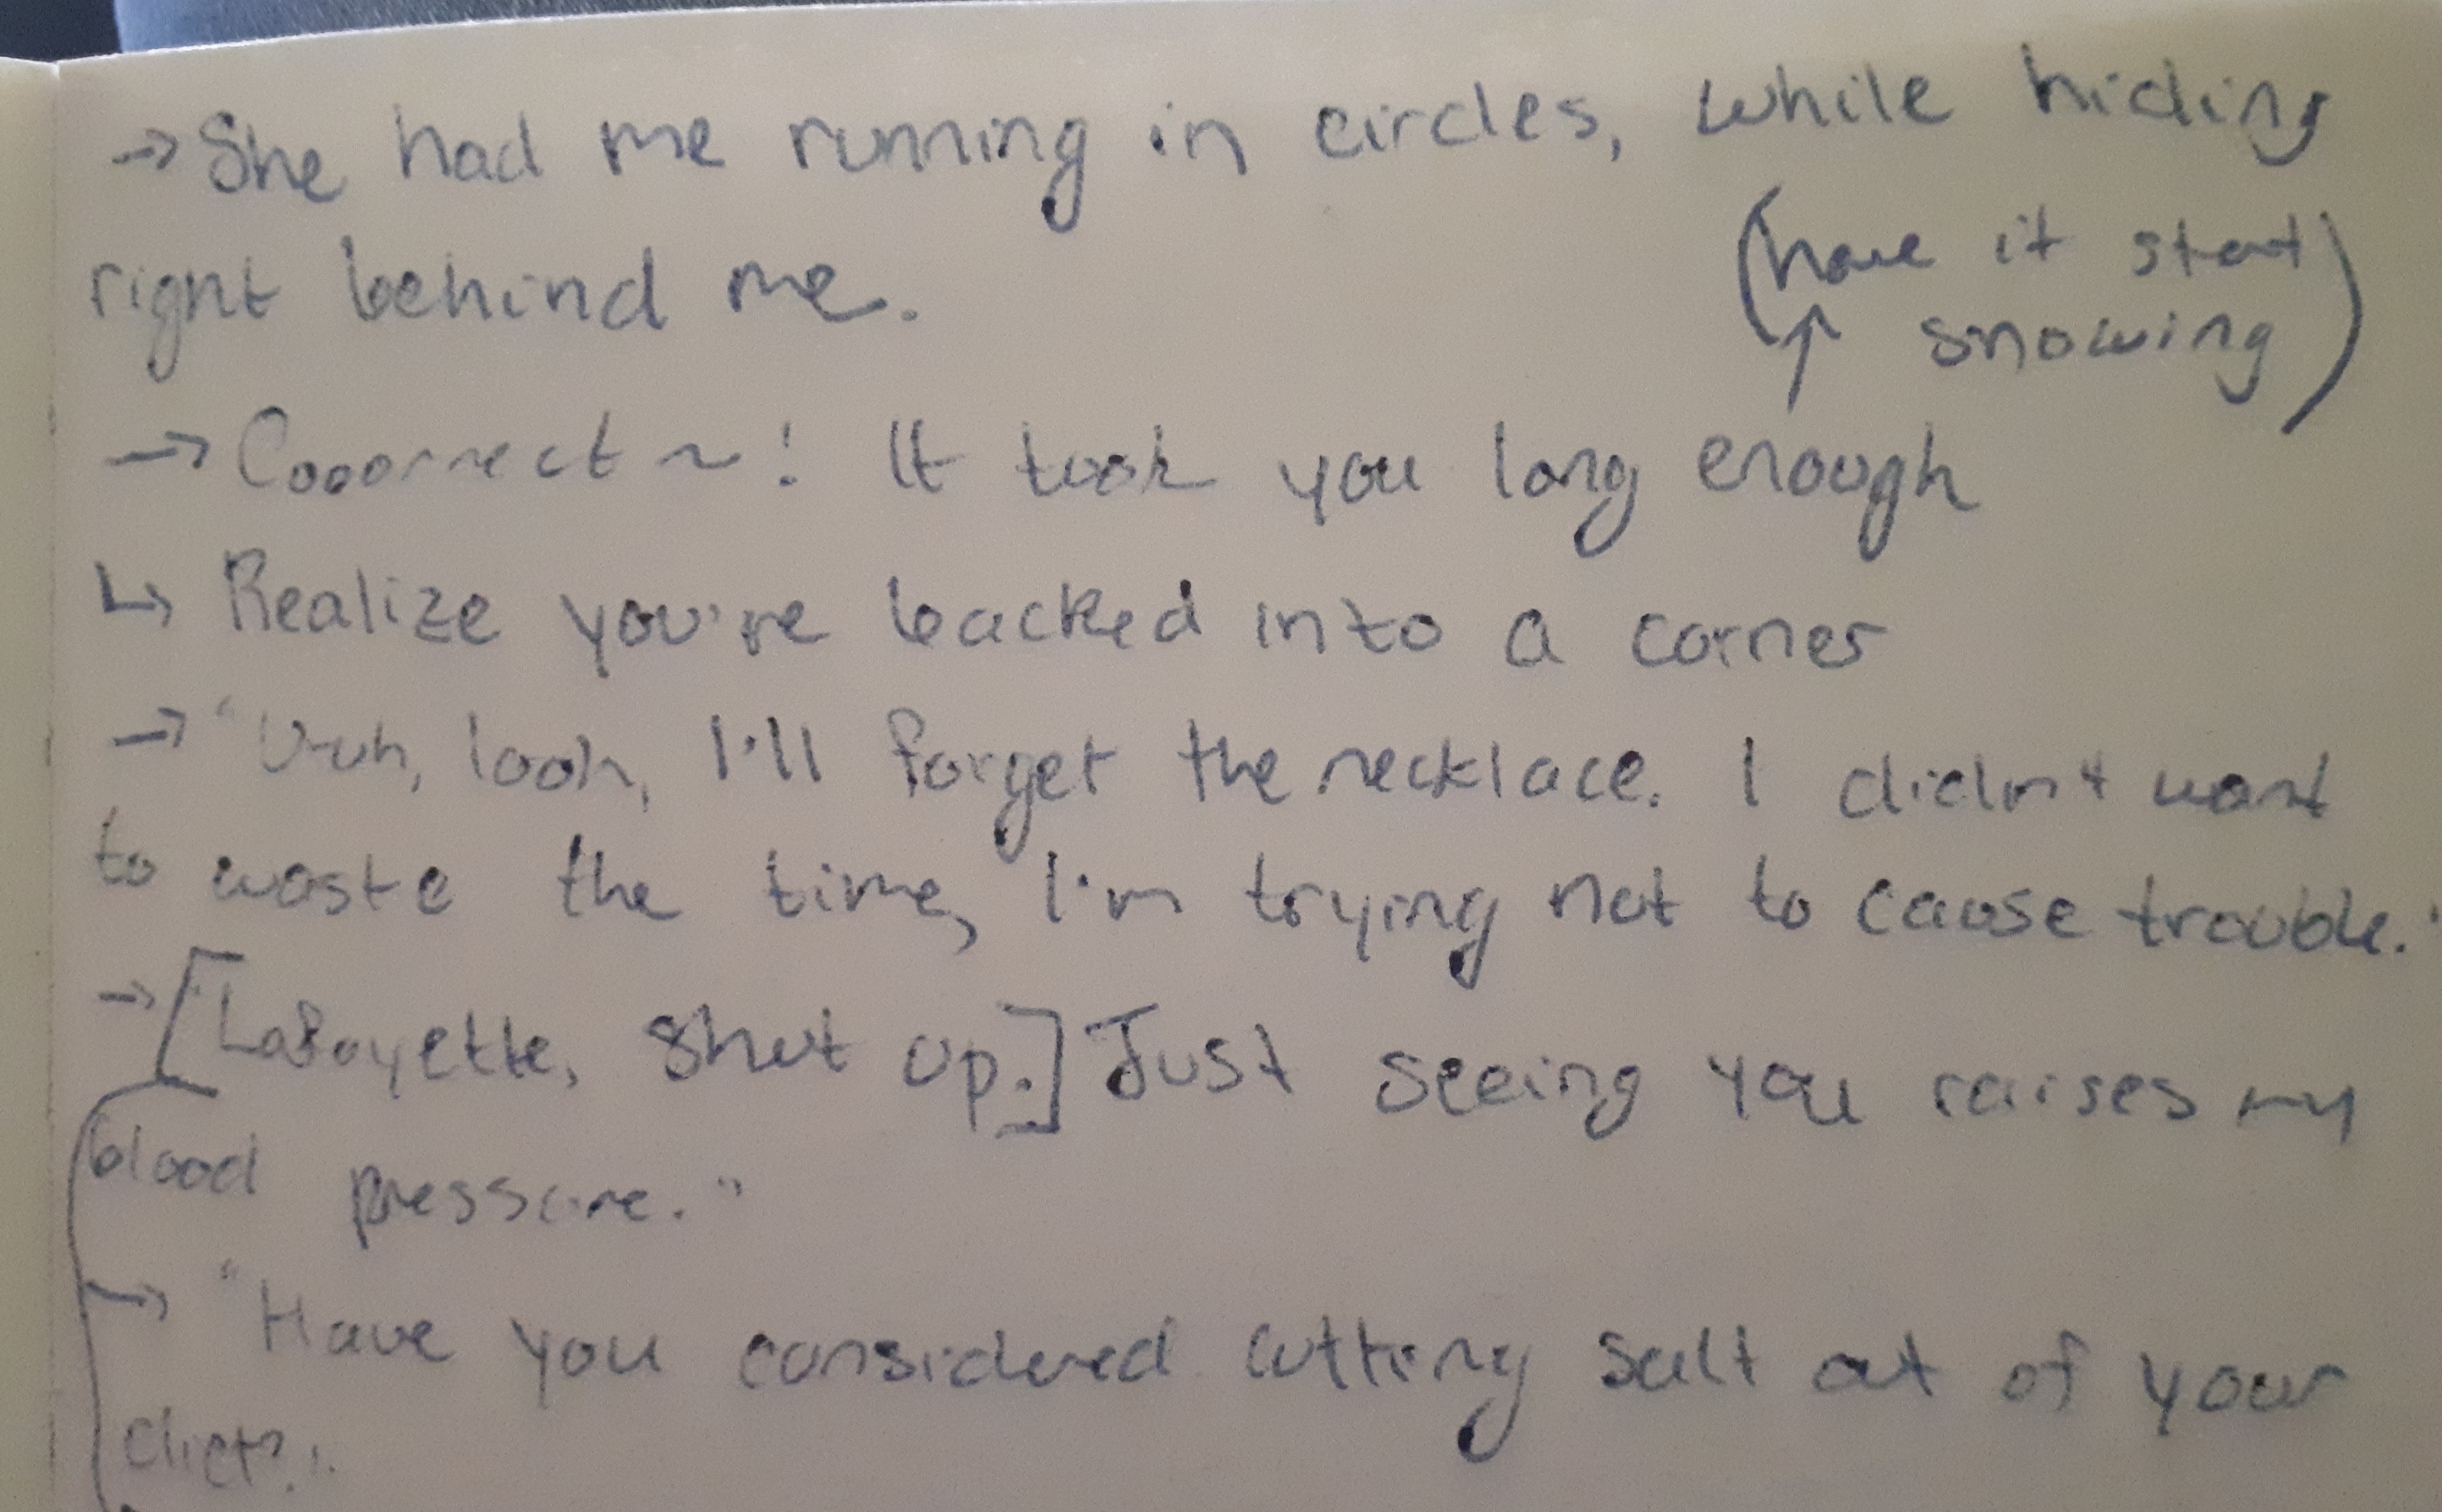 → She had me running in circles, while hiding
right behind me.
(have it start
↑ snowing)
→ Cooorrect ~! It took you long enough
↳ Realize you're backed into a corner
→ "Uuh, look, I'll forget the necklace. I didn't want
to waste the time, I'm trying not to cause trouble."
→ [Lafayette, shut up.] Just seeing you raises my
blood pressure."
→ "Have you considered cutting salt out of your
diet?"